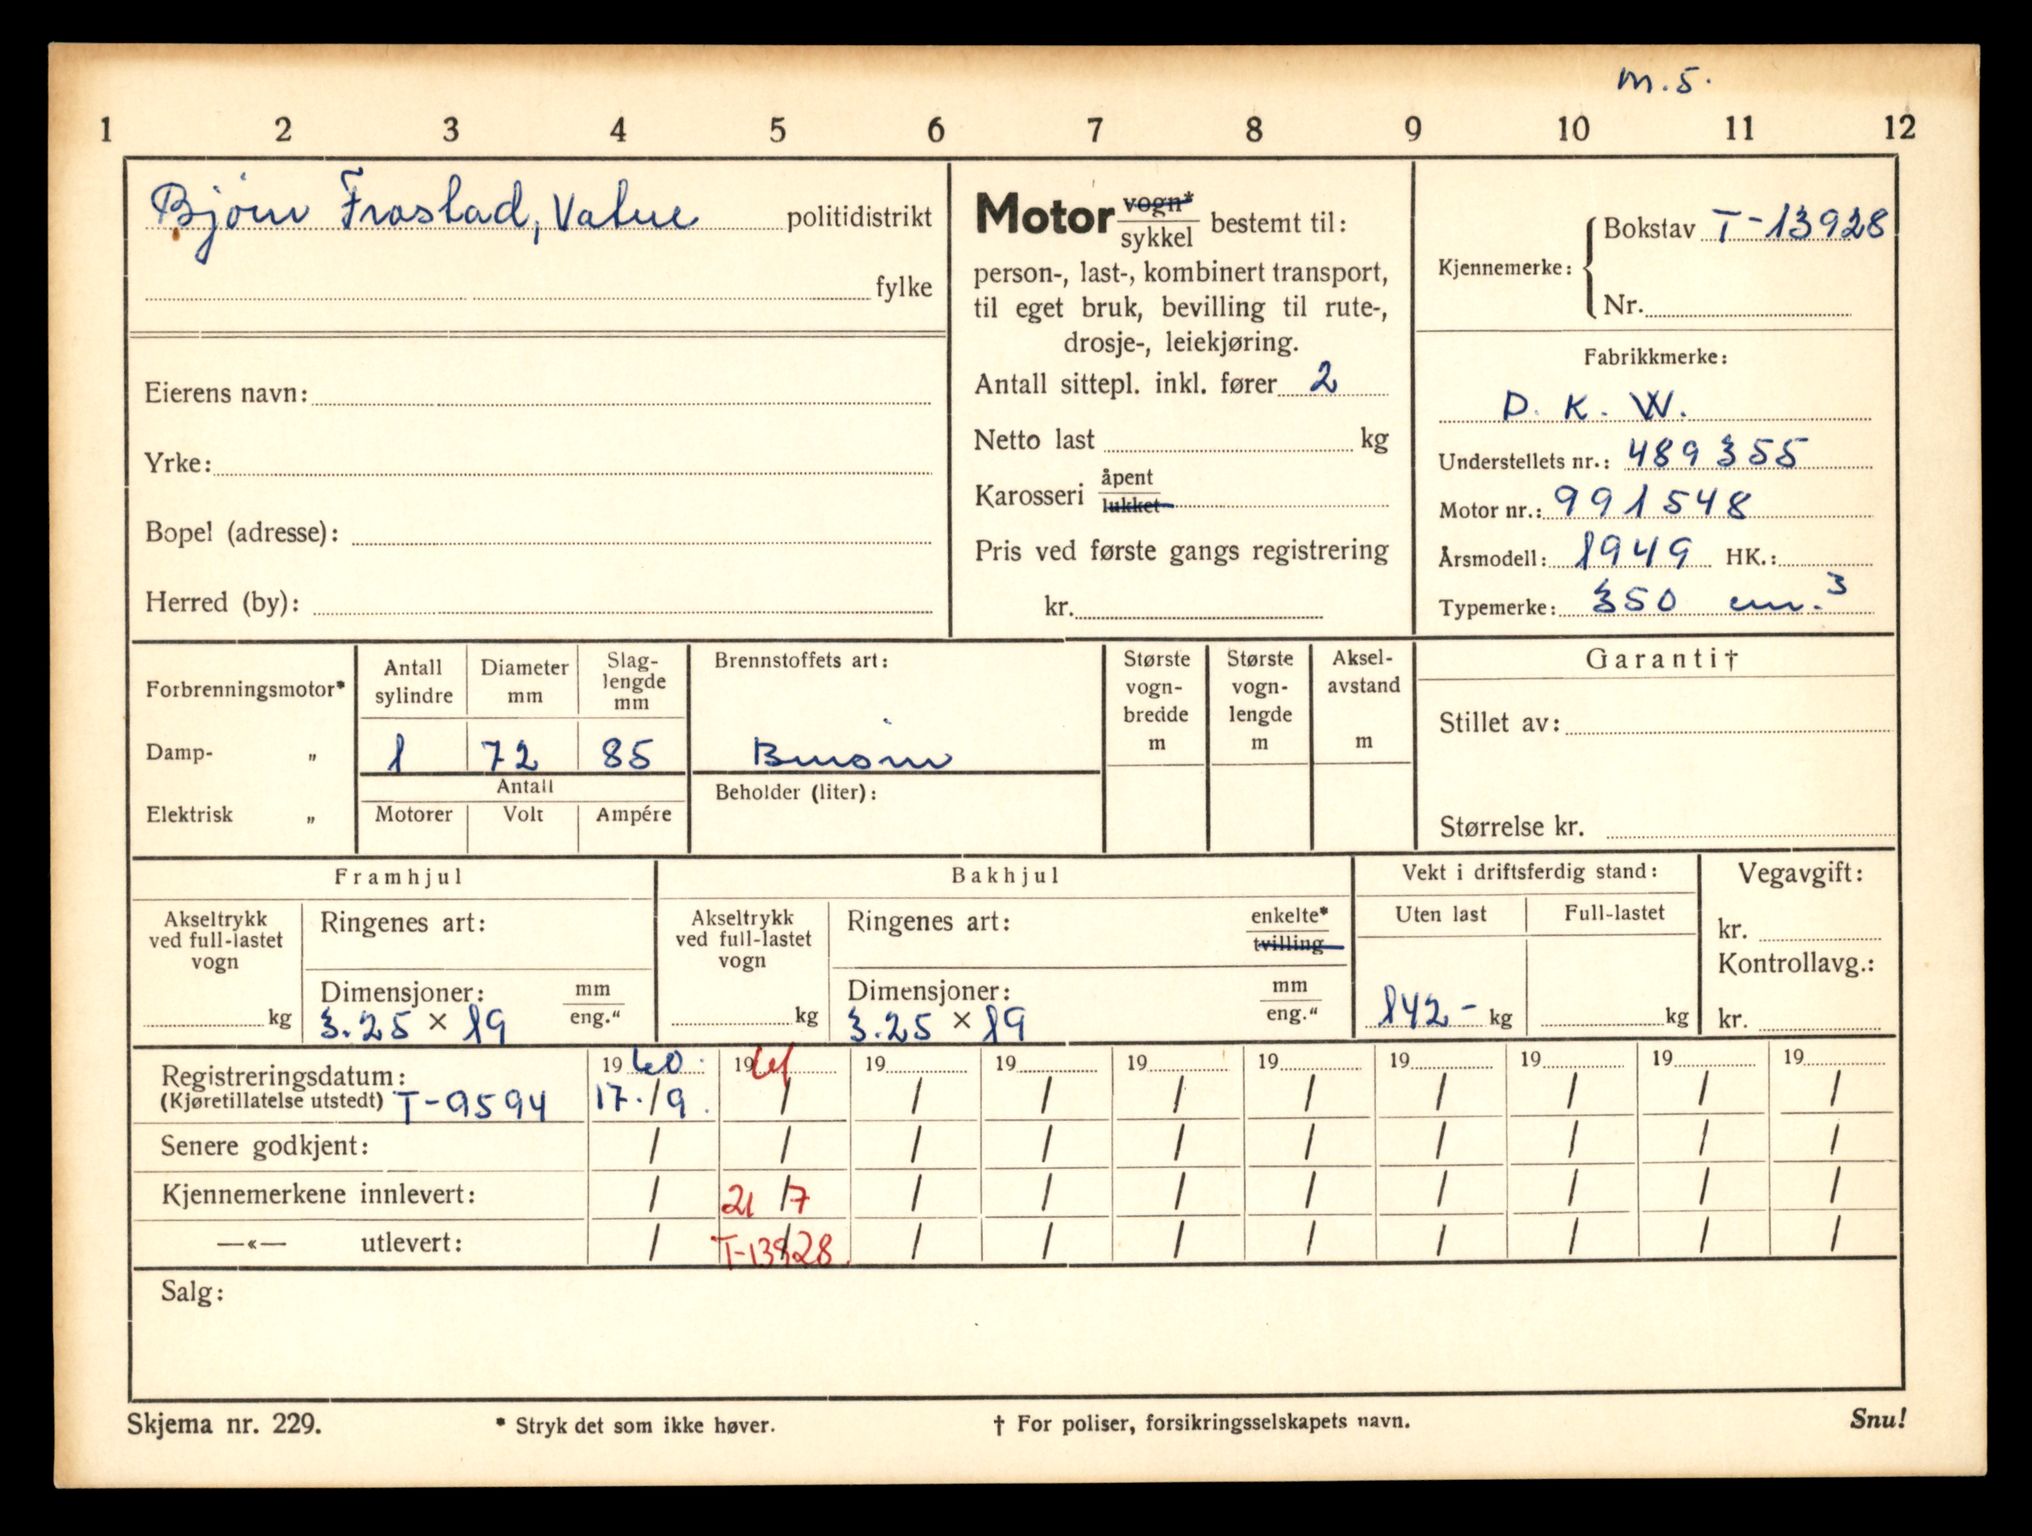 m.5.
1 2 3 4 5 6 7 8 9 10 11 12
Bjørn Frostad, Vatne politidistrikt
fylke
Eierens navn:
Yrke:
Bopel (adresse):
Herred (by):
Motor vogn* sykkel bestemt til:
person-, last-, kombinert transport,
til eget bruk, bevilling til rute-,
drosje-, leiekjøring.
Antall sittepl. inkl. fører 2
Netto last kg
Karosseri åpent lukket
Pris ved første gangs registrering
kr.
Kjennemerke: Bokstav T-13928
Nr.
Fabrikkmerke:
D. K. W.
Understellets nr.: 489355
Motor nr.: 991548
Årsmodell: 1949 HK.:
Typemerke: 350 cm.³
Forbrenningsmotor*
Damp- „
Elektrisk „
Antall sylindre
Diameter mm
Slag-lengde mm
1 72 85
Antall
Motorer Volt Ampére
Brennstoffets art:
Bensin
Beholder (liter):
Største vogn-bredde m
Største vogn-lengde m
Aksel-avstand m
Garanti†
Stillet av:
Størrelse kr.
Framhjul
Akseltrykk
ved full-lastet
vogn
kg
Ringenes art:
Dimensjoner: mm eng."
3.25 × 19
Bakhjul
Akseltrykk
ved full-lastet
vogn
kg
Ringenes art: enkelte* tvilling
Dimensjoner: mm eng."
3.25 × 19
Vekt i driftsferdig stand:
Uten last Full-lastet
142- kg kg
Vegavgift:
kr.
Kontrollavg.:
kr.
Registreringsdatum: 1960. 1961 19 19 19 19 19 19 19 19
(Kjøretillatelse utstedt) T-9594 17./9. / / / / / / / / /
Senere godkjent: / / / / / / / / / /
Kjennemerkene innlevert: / 21/7 / / / / / / / /
—«— utlevert: / T-13928. / / / / / / / /
Salg:
Skjema nr. 229. * Stryk det som ikke høver. † For poliser, forsikringsselskapets navn. Snu!